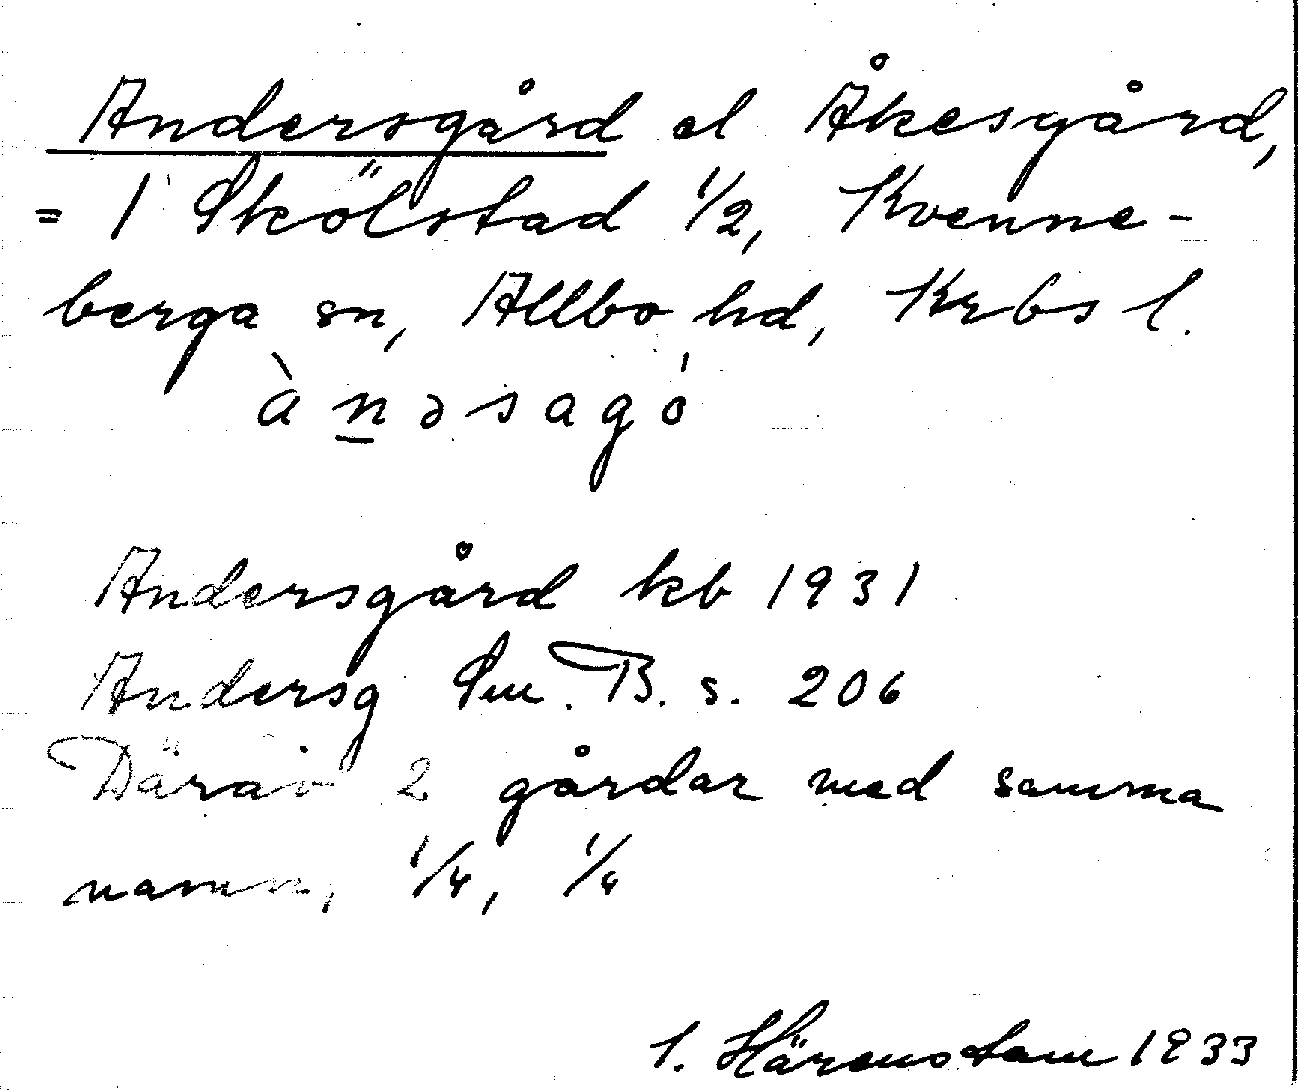 Andersgård el Åkesgård,
= 1 Skölstad 1/2, Kvenne-
berga sn, Allbo hd, Krbs l.
àn̲əsagó
Andersgård kb 1931
Andersg Sm. B. s. 206
Därav 2 gårdar med samma
namn, 1/4, 1/4
I. Härenstam 1933